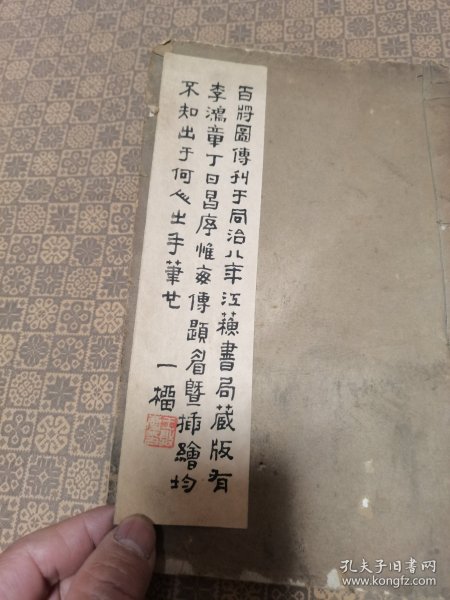 百將圖傳刋于同治八年江蘓書局蔵版有
李鴻章丁日昌序惟每傳題眉暨揷繪均
不知出于何人之手筆也
一櫑
孔夫子旧书网
www.kongfz.com